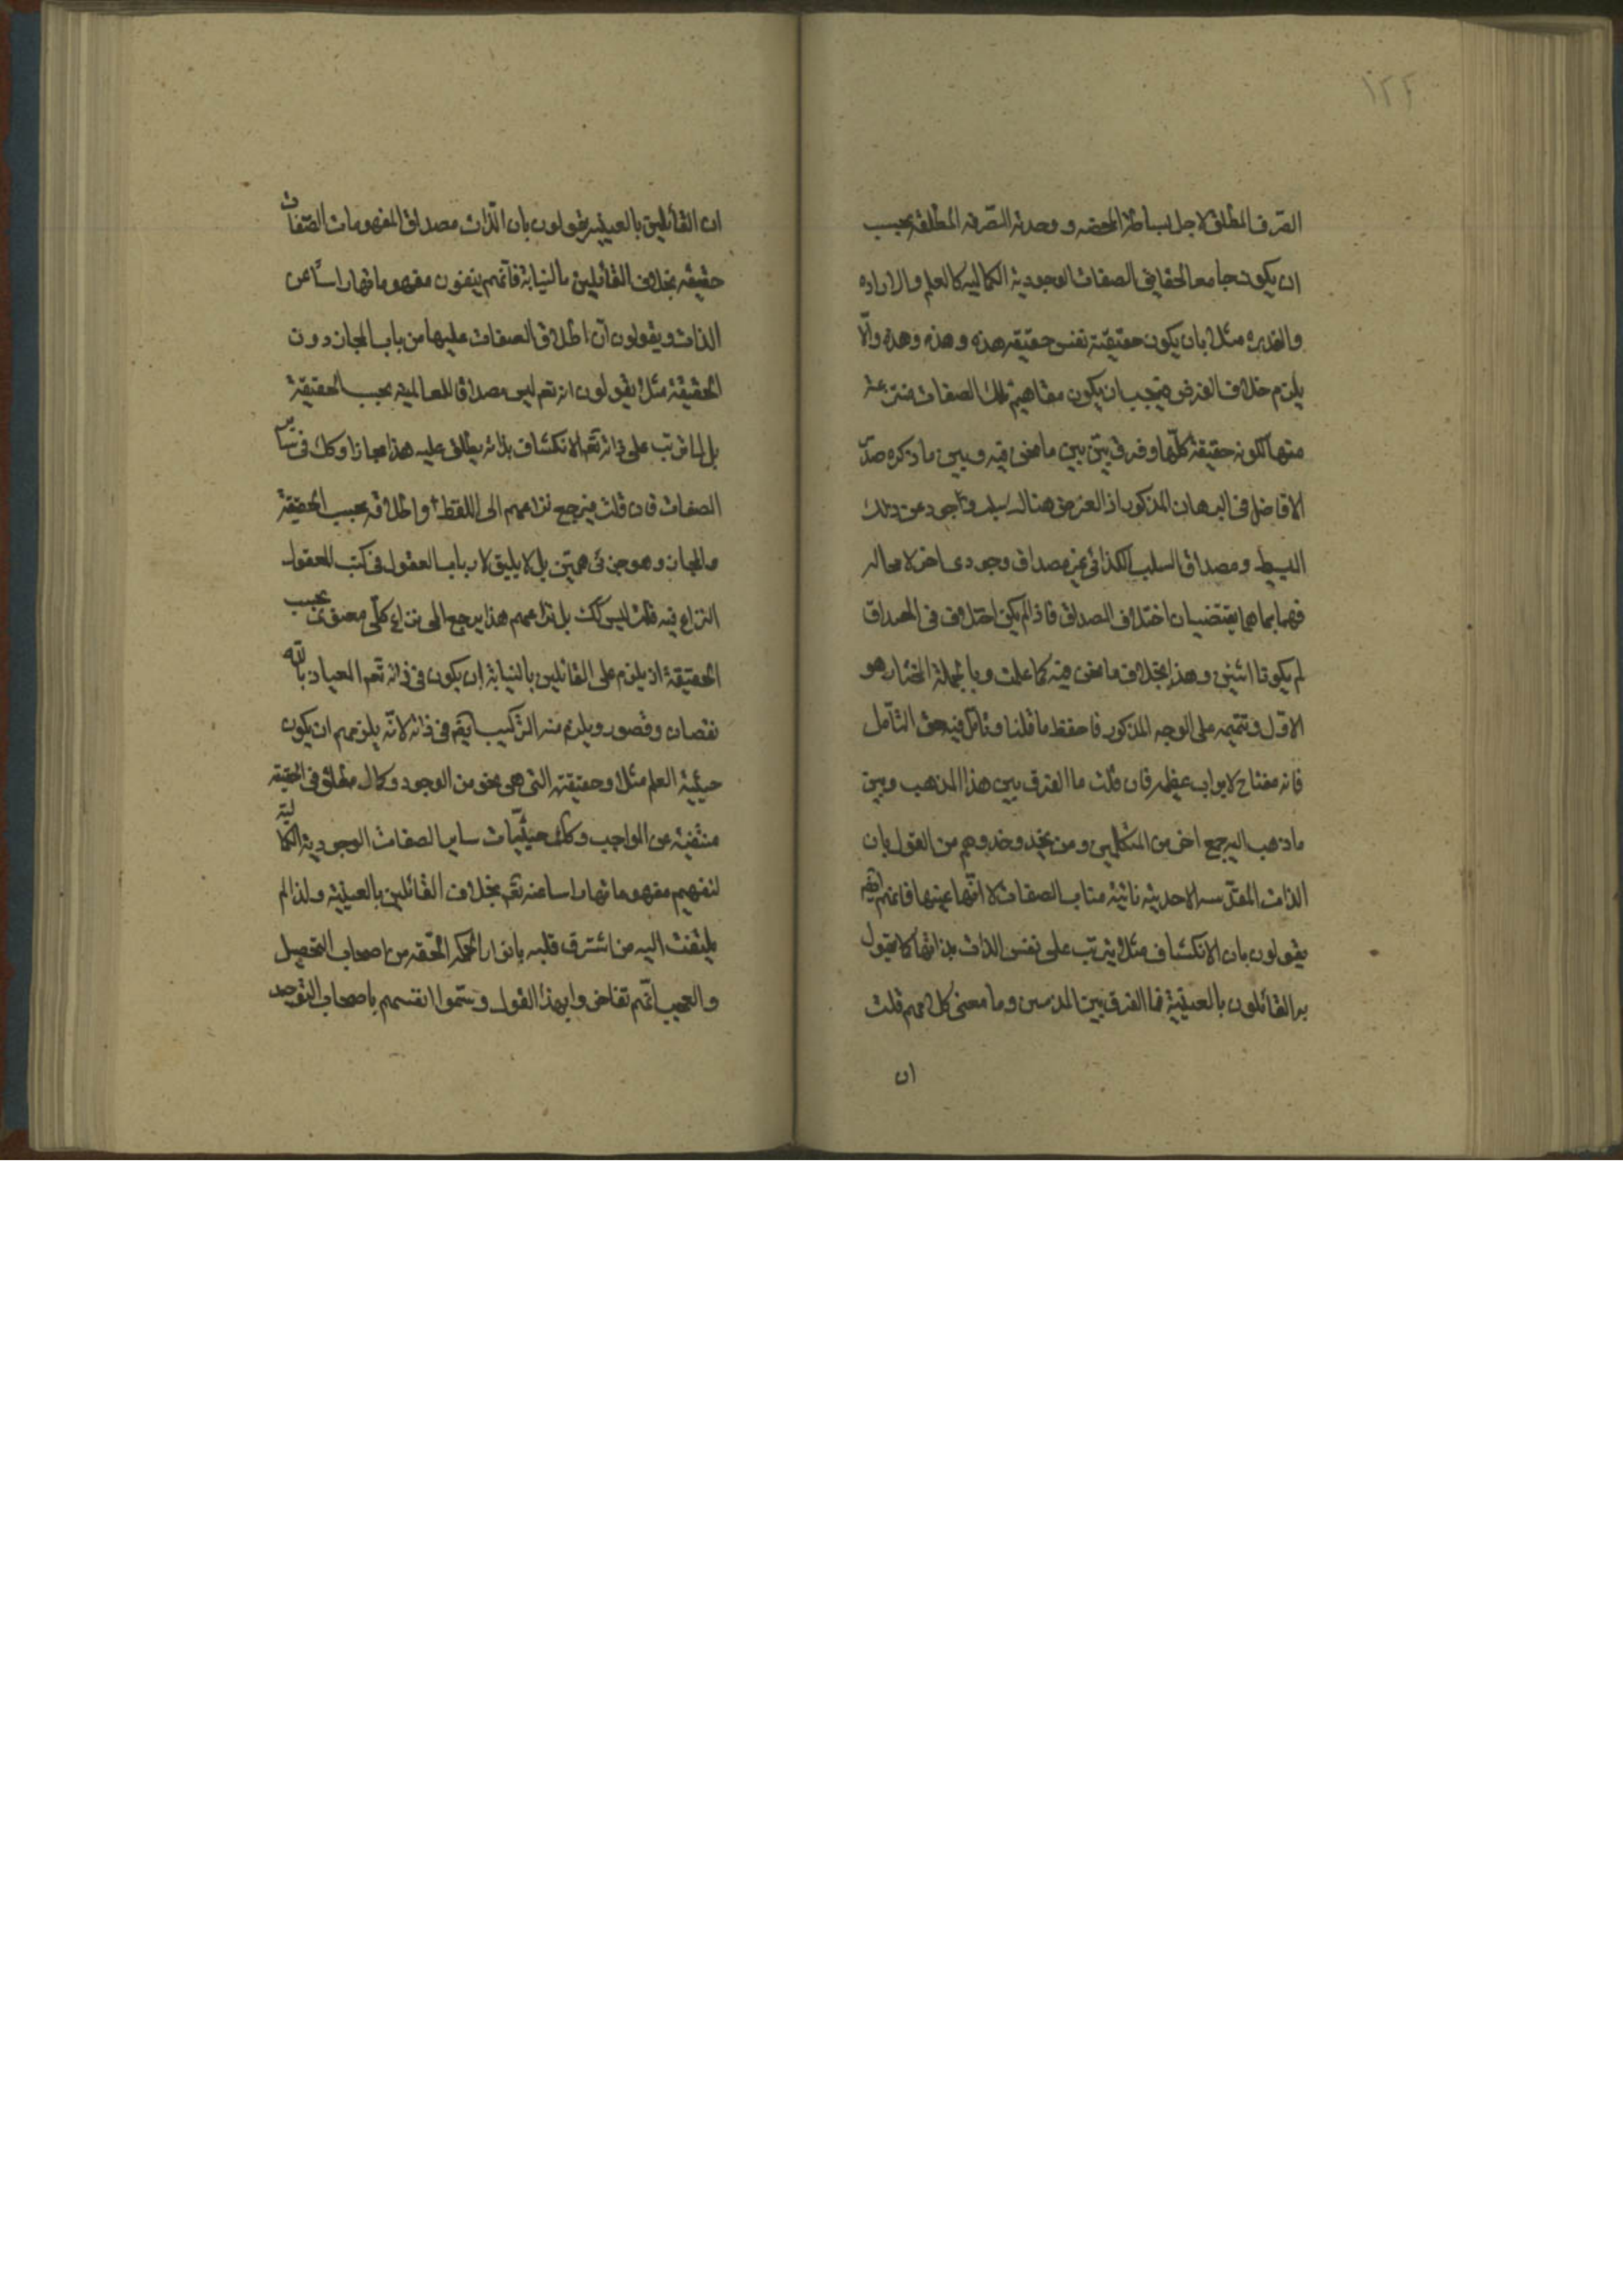 ١٢٤
الصرف المطلق لاجل بساطة المحضه و وحدته الصرفه المطلقه يجب
ان يكون جامعا لحقايق الصفات الوجودية الكماليه كالعلم والاراده
والقدره مثلا بان يكون حقيقته نفس حقيقه هذه و هذه و هذه والّا
يلزم خلاف الفرض فيجب ان يكون مفاهيم تلك الصفات منتزعه
منها لكونه حقيقة كلّها و فرق بيّن بين ما نحن فيه و بين ما ذكره صدر
الافاضل فى البرهان المذكور اذ الغرض هناك سلب وجود عن ذلك
البسيط و مصداق السلب الكذائى غير مصداق وجودى اخر لا محاله
فهما بما هما يقتضيان اختلاف المصداق فاذا لم يكن اختلاف فى المصداق
لم يكونا اثنين و هذا بخلاف ما نحن فيه كما علمت و بالجملة المختار هو
الاوّل و تتميمه على الوجه المذكور فاحفظ ما قلنا و تامّل فيه حق التأمل
فانه مفتاح لابواب عظيمه فان قلت ما الفرق بين هذا المذهب و بين
ما ذهب اليه جمع اخر من المتكلمين و من يحذو حذوهم من القول بان
الذات المقدّسه الاحدية نائبة مناب الصفات لا انّها عينها فانهم ايضم
يقولون بان الانكشاف مثلا يترتب على نفس الذات بذاتها كما يقول
به القائلون بالعينية فما الفرق بين المذهبين و ما معنى كلامهم قلت
ان
ان القائلين بالعينيه يقولون بان الذّات مصداق المفهومات الصّفات
حقيقه بخلاف القائلين بالنيابة فانّهم ينفون مفهوماتها راسًا عن
الذات و يقولون انّ اطلاق الصفات عليها من باب المجاز دون
الحقيقة مثلا يقولون انه تعم ليس مصداقا للعالميه بحسب الحقيقة
بل لما ترتب على ذاته تعم الانكشاف بذاته يطلق عليه هذا مجازا و كك فى ساير
الصفات فان قلت فيرجع نزاعهم الى اللفظ و اطلاقه بحسب الحقيقة
و المجاز و هو جزئى هيّن بل لا يليق لارباب العقول فى كتب المعقول
النزاع فيه قلت ليس كك بل نزاعهم هذا يرجع الى نزاع كلّى معنوى بحسب
الحقيقة اذ يلزم على القائلين بالنيابة ان يكون فى ذاته تعم العياذ بالله
نقصان و قصور و يلزم منه التركيب ايضم فى ذاته لانّه يلزمهم ان يكون
حيثية العلم مثلا و حقيقته التى هى نحو من الوجود و كمال مطلق فى الحقيقه
منتفية عن الواجب و كك حيثيّات ساير الصفات الوجودية الكمالية
لنفيهم مفهوماتها راسا عنه تعم بخلاف القائلين بالعينية و لذا لم
يلتفت اليه من اشرق قلبه بانوار الحكمه المحقّه من اصحاب التحصيل
و العجب انّهم تفاخروا بهذا القول و سمّوا انفسهم باصحاب التوحيد